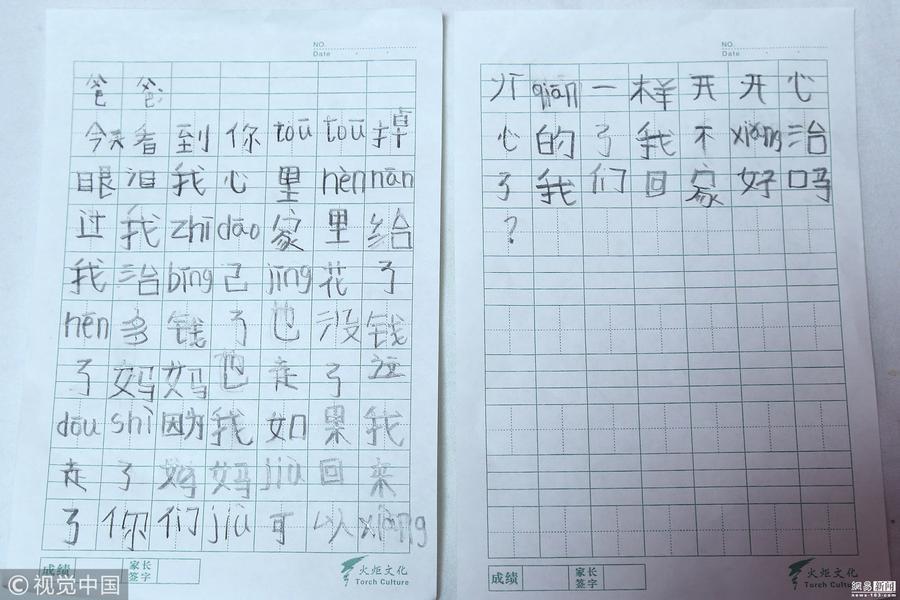 NO.
Date
爸爸
今天看到你tōu tōu掉
眼泪我心里hèn nān
过我zhī dāo家里给
我治bīng己jīng花了
hēn多钱了也没钱
了妈妈也走了这
dōu shì因为我如果我
走了妈妈jiù回来
了你们jiù可以xiàng
成绩
家长签字
火炬文化
Torch Culture
NO.
Date
qiān一样开开心
心的了我不xiǎng治
了我们回家好吗
?
成绩
家长签字
火炬文化
Torch Culture
©视觉中国
網易新闻
news·163.com